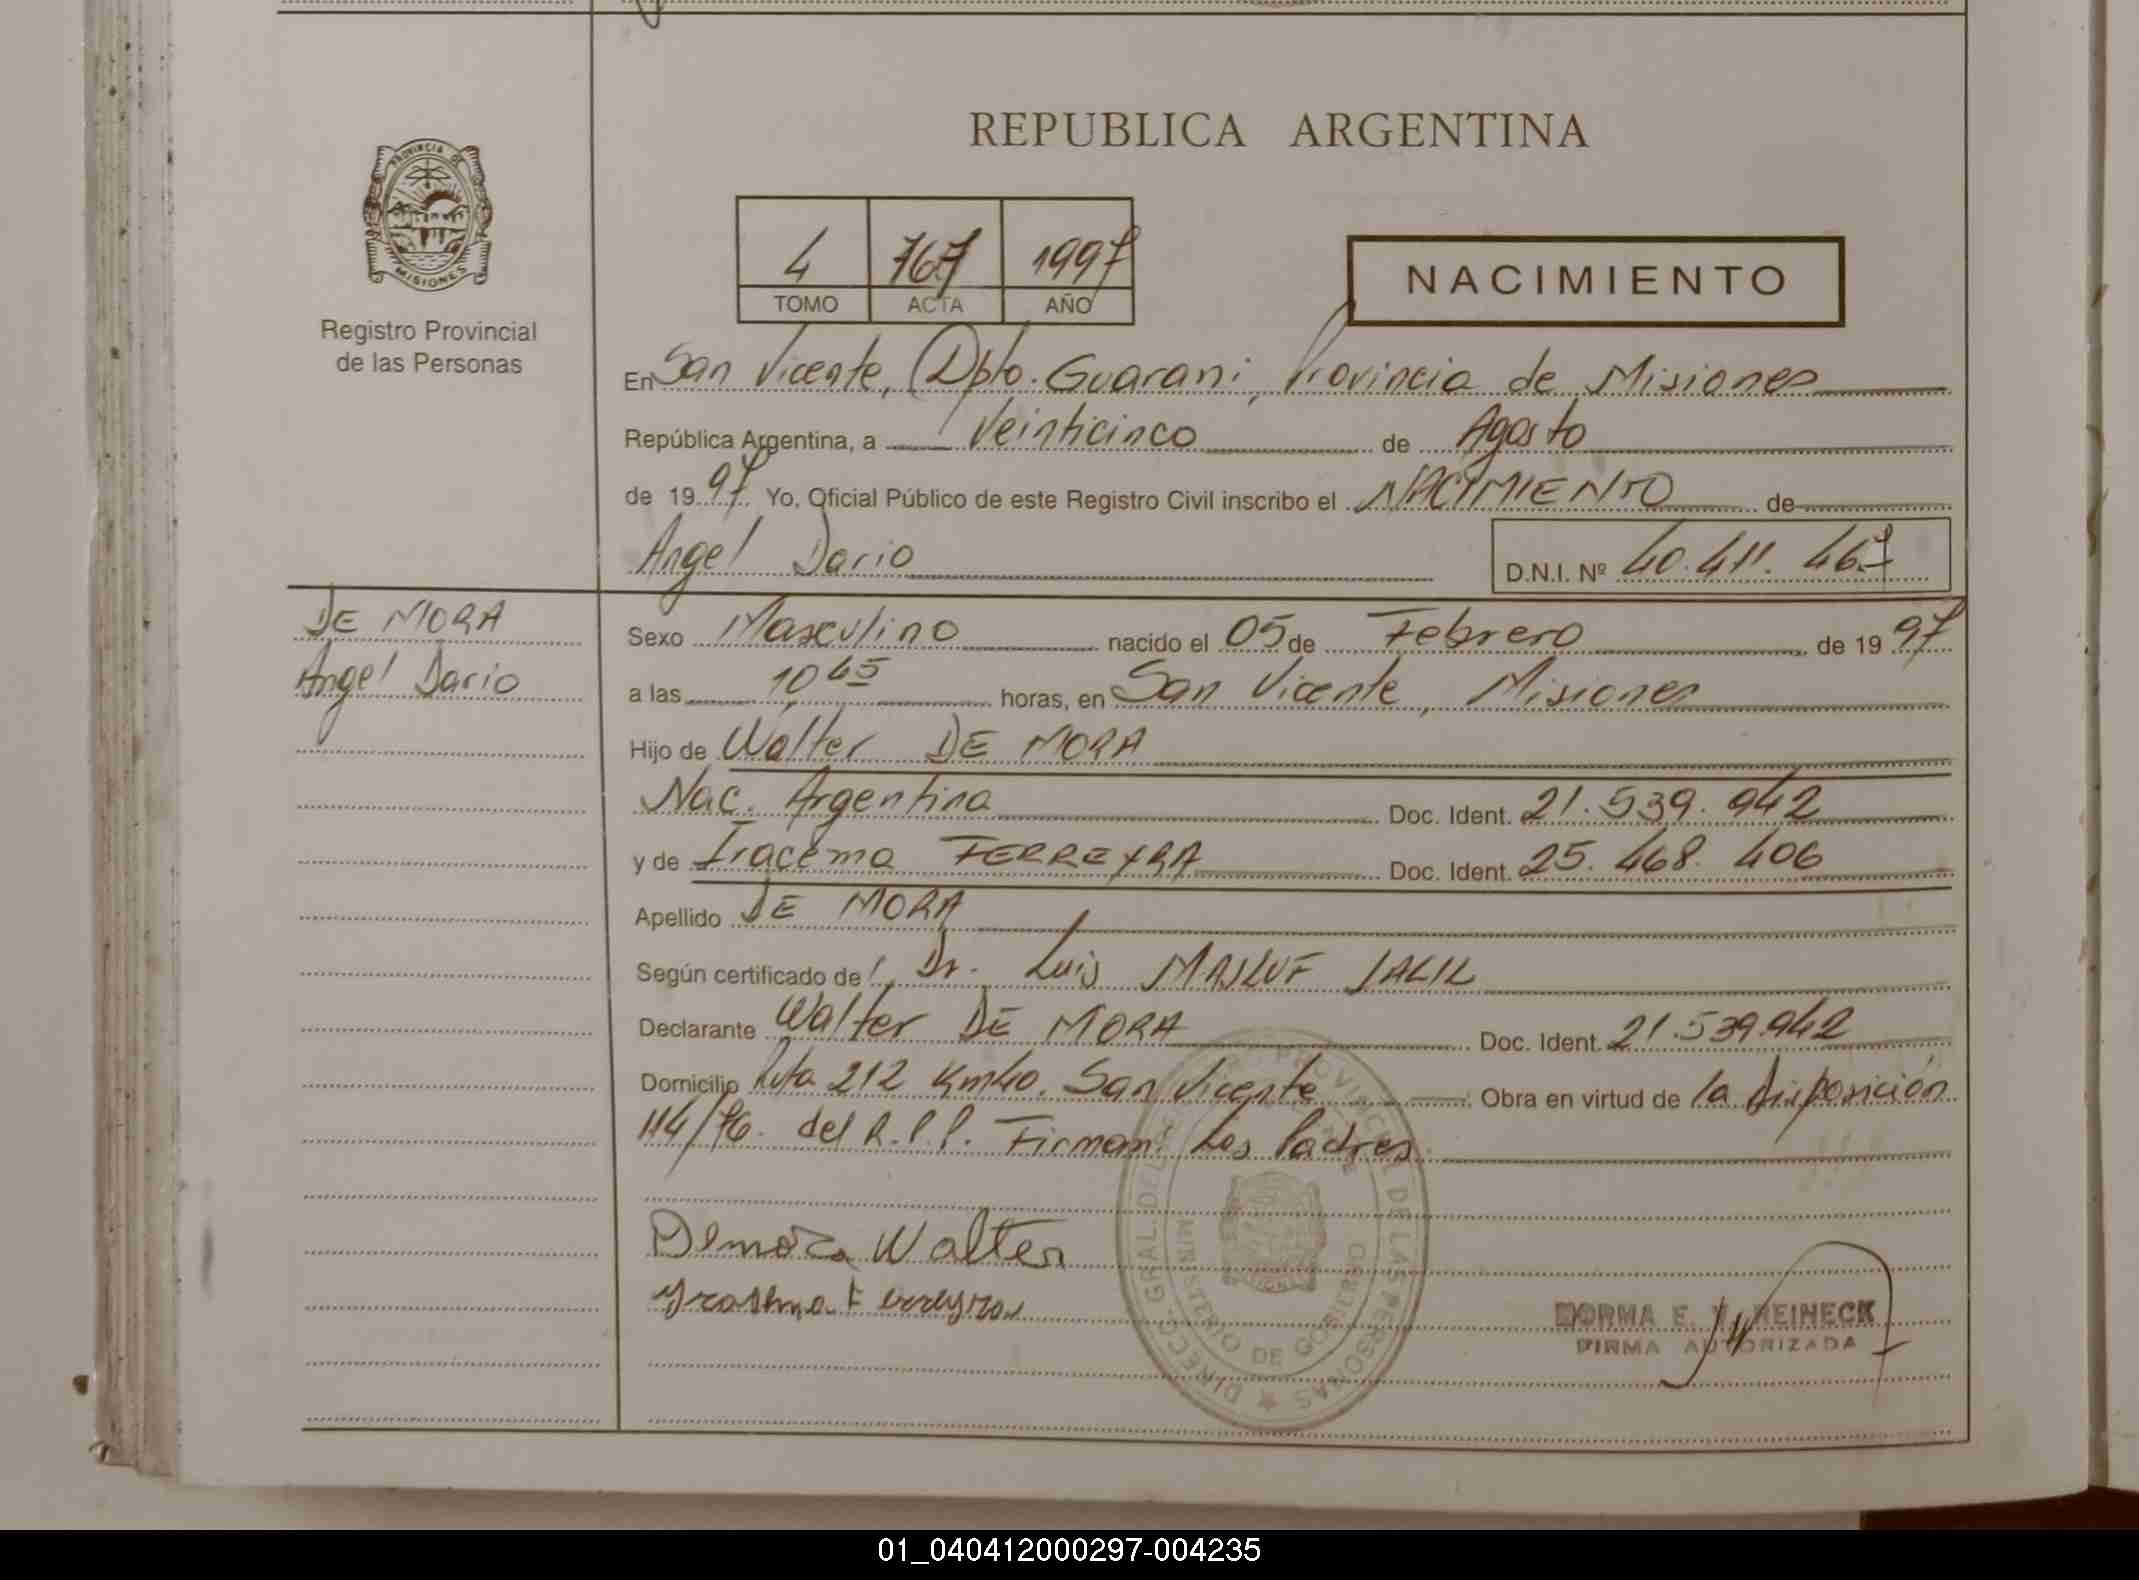 REPUBLICA ARGENTINA
PROVINCIA DE
MISIONES
Registro Provincial
de las Personas
4 767 1997
TOMO ACTA AÑO
NACIMIENTO
En San Vicente, Dpto. Guarani, Provincia de Misiones
República Argentina, a Veinticinco de Agosto
de 1997. Yo, Oficial Público de este Registro Civil inscribo el NACIMIENTO de
Angel Dario D.N.I. Nº 40.411.467
DE MORA
Angel Dario
Sexo Masculino nacido el 05 de Febrero de 1997
a las 10,45 horas, en San Vicente, Misiones
Hijo de Walter DE MORA
Nac. Argentina Doc. Ident. 21.539.942
y de Iracema FERREYRA Doc. Ident. 25.468.406
Apellido DE MORA
Según certificado de Dr. Luis MASLUF JALIL
Declarante Walter DE MORA Doc. Ident. 21.539.942
Domicilio Ruta 212 Km40. San Vicente Obra en virtud de la Disposición
114/96. del R.P.P. Firman: Los Padres
Demora Walter
Ferreyra
NORMA E. REINECK
FIRMA AUTORIZADA
DIRECC. GRAL. DEL REG. PROVINCIAL DE LAS PERSONAS
MINISTERIO DE GOBIERNO
01_040412000297-004235